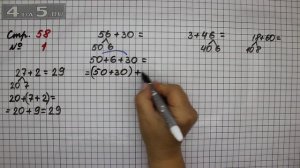 4 на 5.ru
Стр. 58
№ 1
27+2=29
20 7
20+(7+2)=
=20+9=29
56+30=
50 6
50+6+30=
=(50+30)+
3+46=
40 6
18+60=
10 8